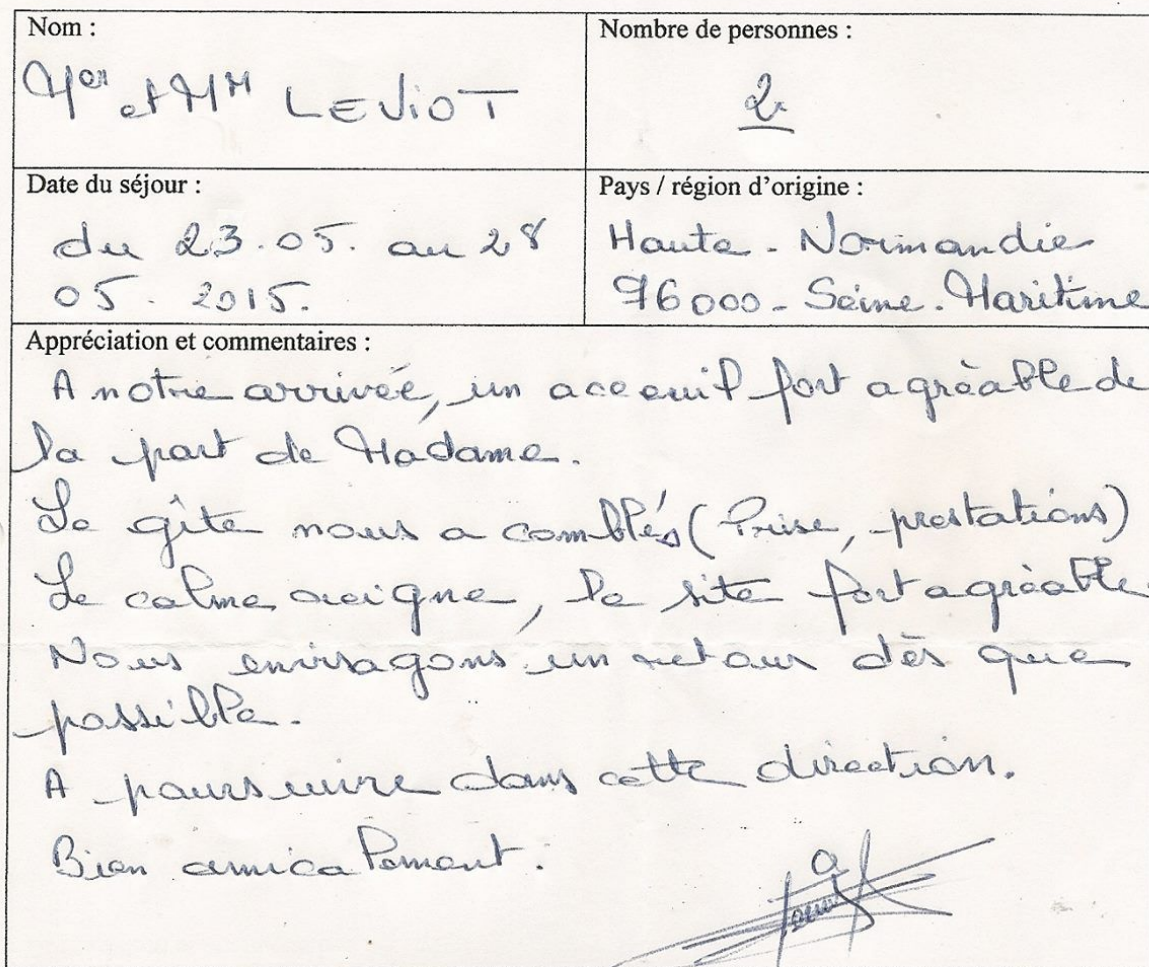 Nom :
Mer et MM LEVIOT
Nombre de personnes :
2
Date du séjour :
du 23.05. au 28
05. 2015.
Pays / région d'origine :
Haute - Normandie
76000 - Seine. Maritime
Appréciation et commentaires :
A notre arrivée, un acceuil fort agréable de
la part de Madame.
Le gîte nous a comblés (      , prestations)
Le calme reigne, le site fort agréable.
Nous envisagons un retour dès que
possible.
A poursuivre dans cette direction.
Bien amicalement.